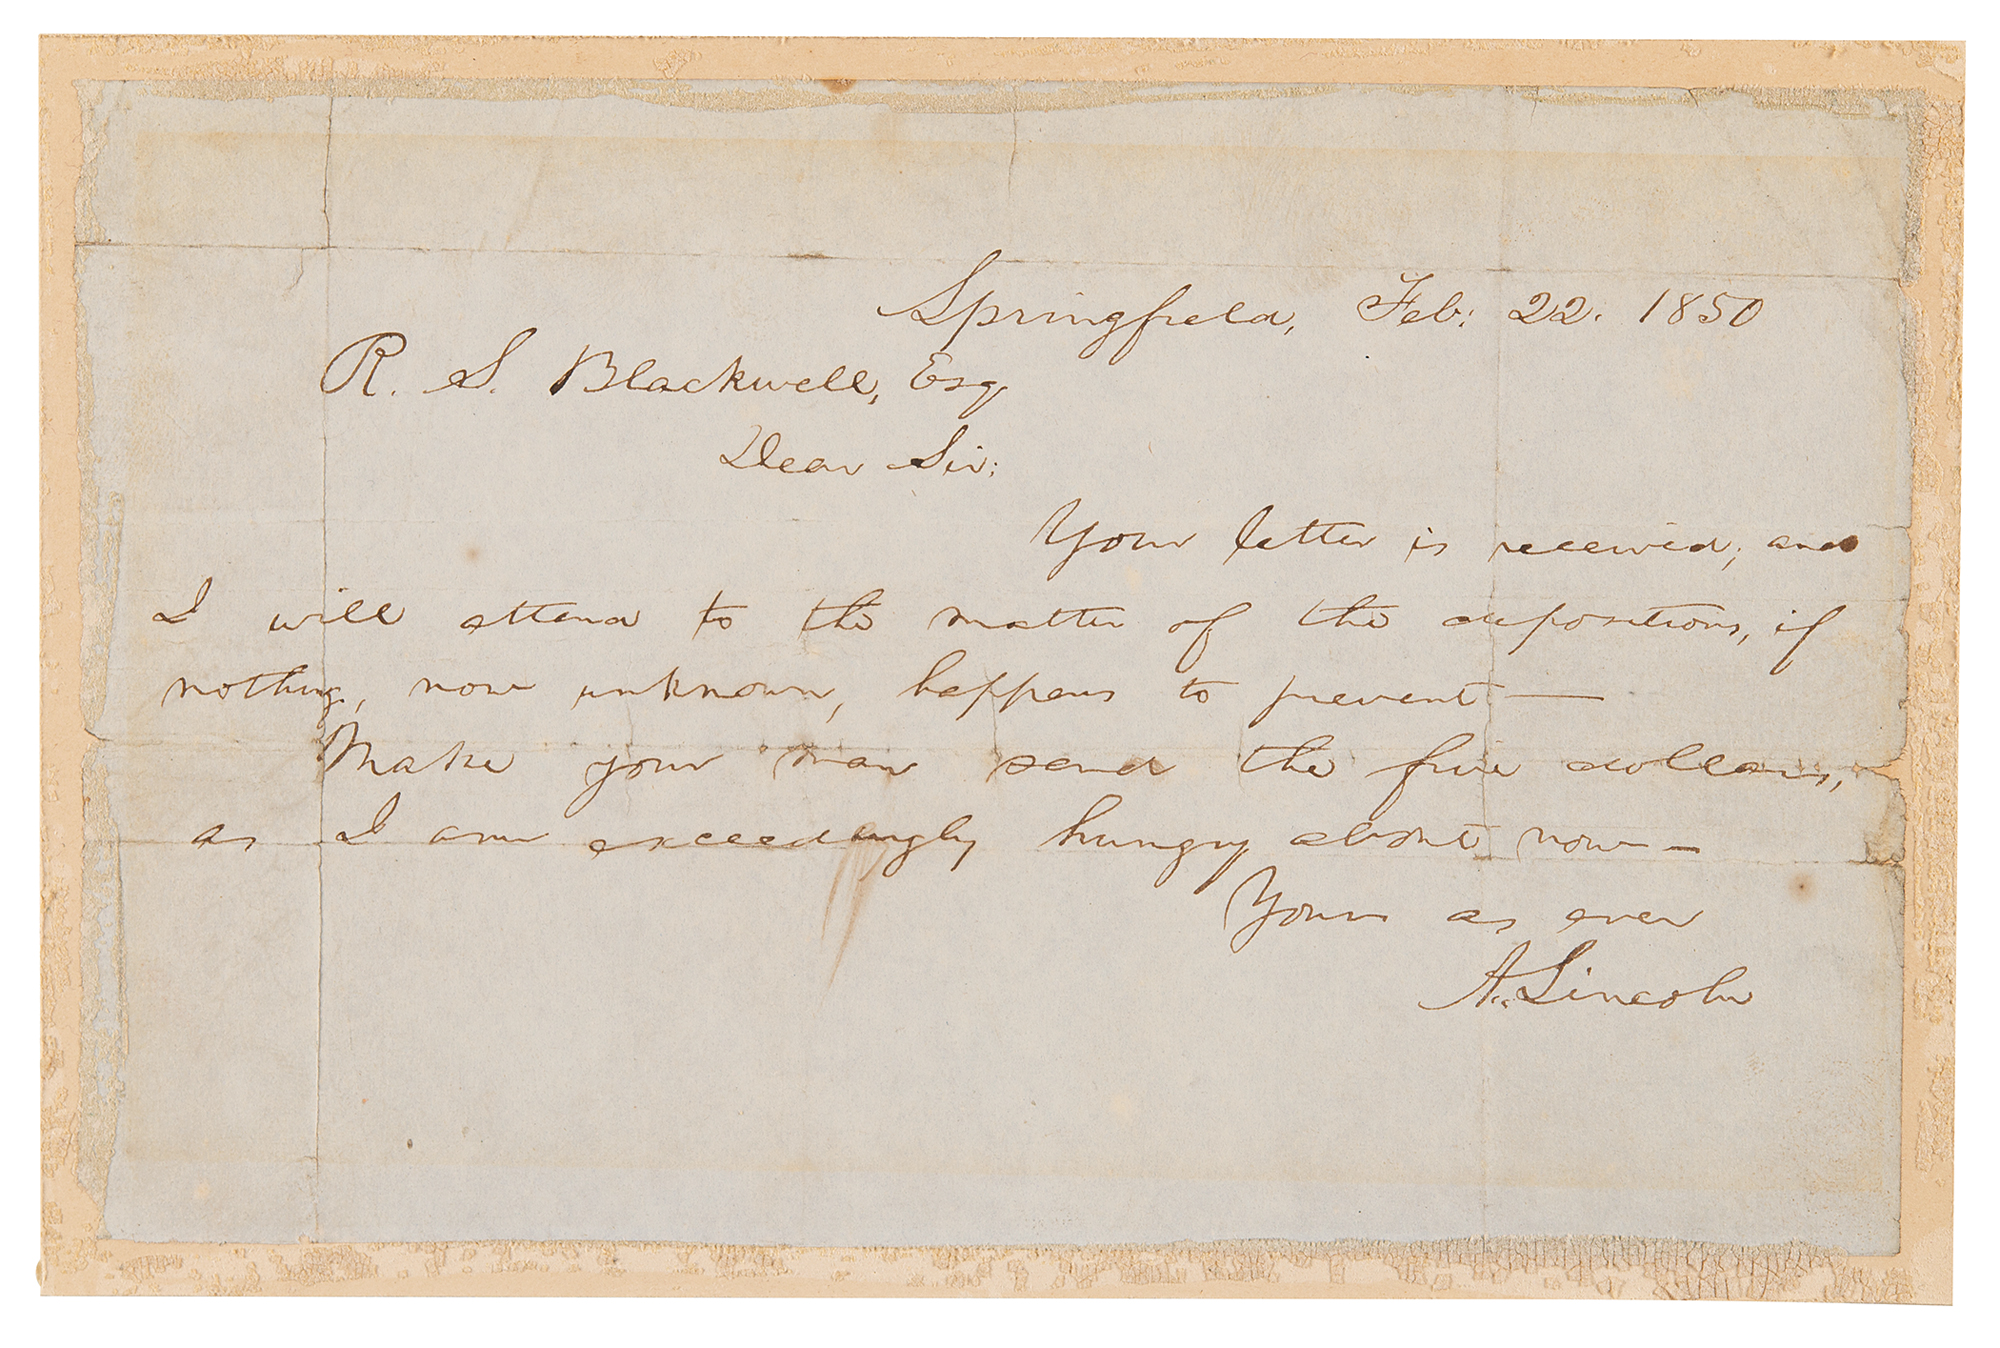 Springfield, Feb: 22. 1850
R. S. Blackwell, Esq.
Dear Sir:
Your letter is received; and
I will attend to the matter of the depositions, if
nothing, now unknown, happens to prevent—
Make your man send the five dollars,
as I am exceedingly hungry about now—
Yours as ever
A. Lincoln